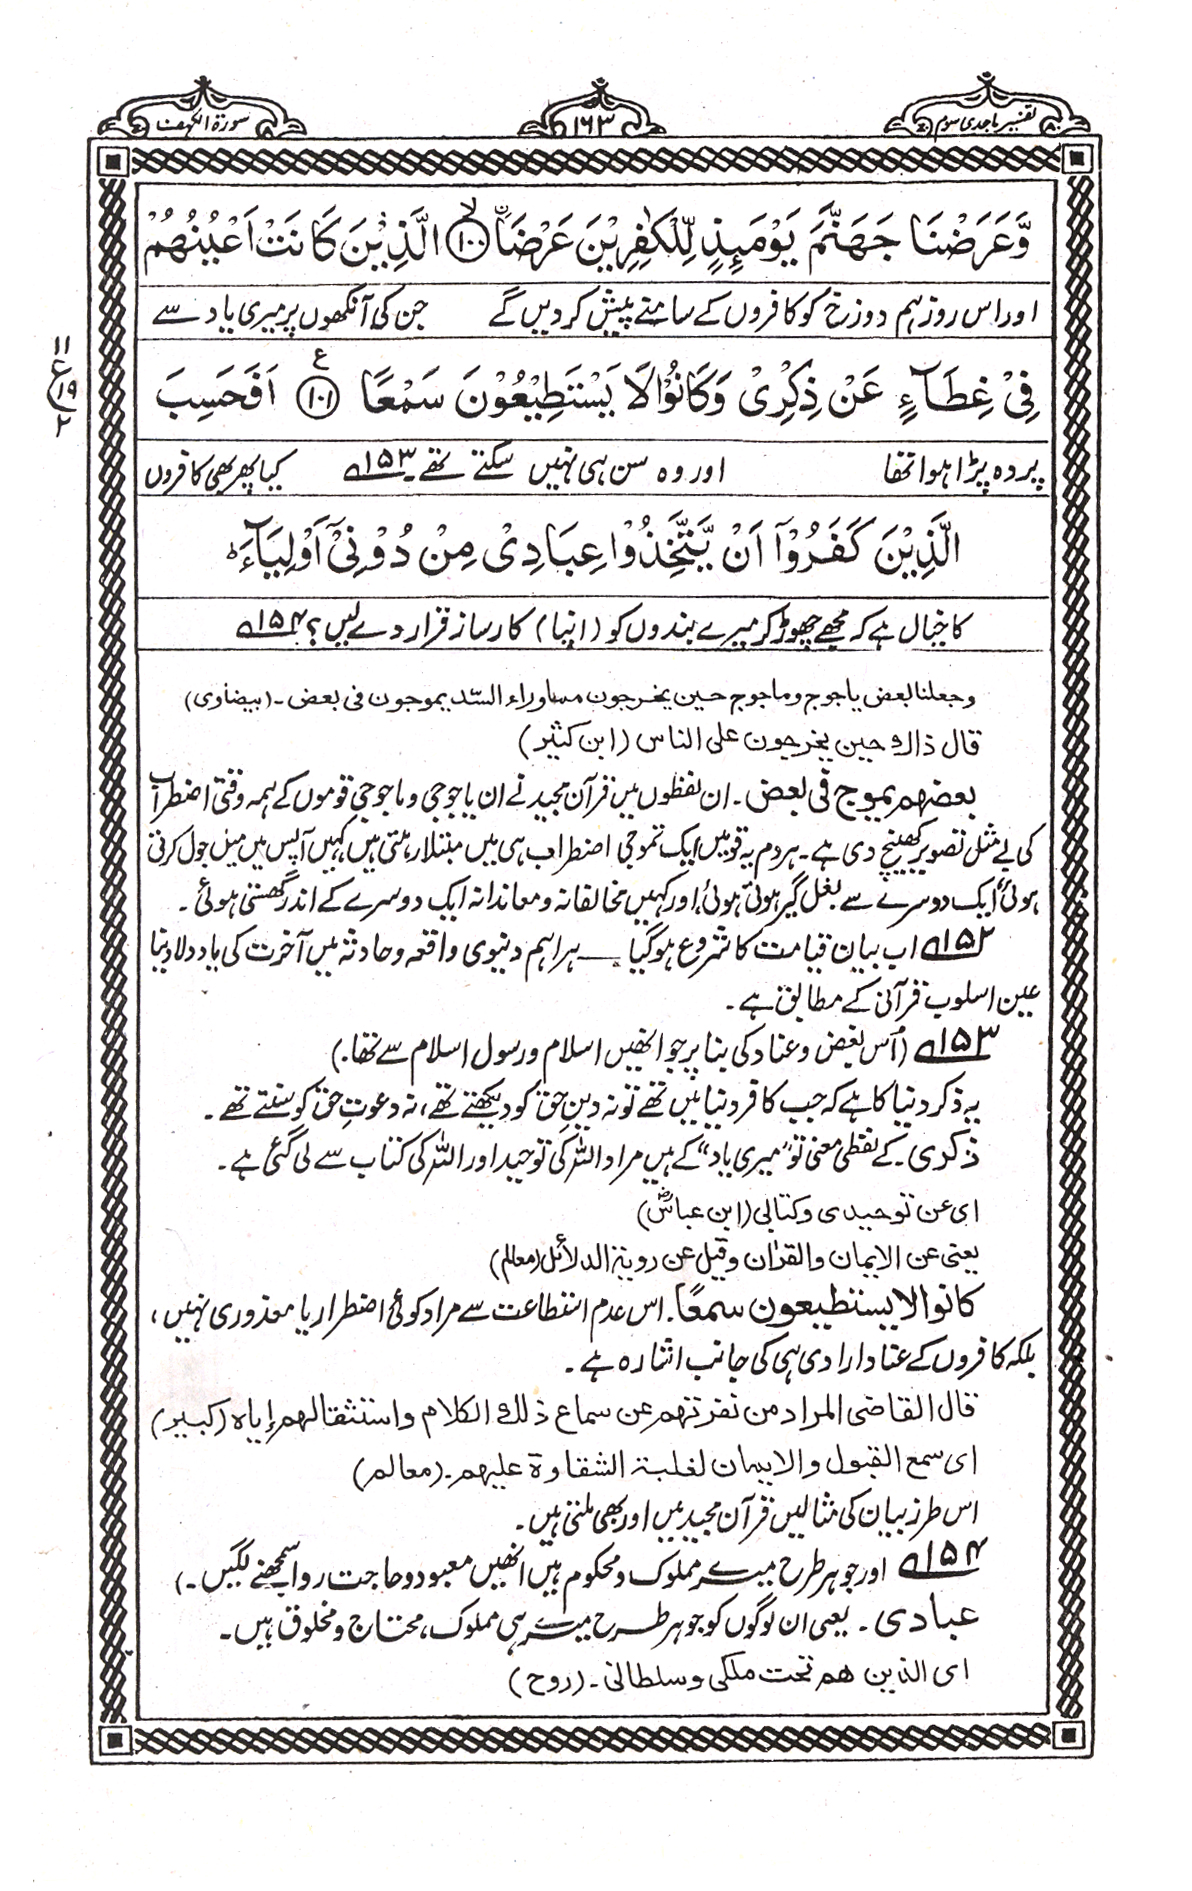 تفسیر ماجدی سوم
۱۶۳
سورۃ الکہف
وَّعَرَضْنَا جَهَنَّمَ يَوْمَئِذٍ لِّلْكٰفِرِيْنَ عَرْضَا ۙ﴿۱۰۰﴾ الَّذِيْنَ كَانَتْ اَعْيُنُهُمْ
اور اس روز ہم دوزخ کو کافروں کے سامنے پیش کر دیں گے جن کی آنکھوں پر میری یاد سے
فِيْ غِطَآءٍ عَنْ ذِكْرِيْ وَكَانُوْا لَا يَسْتَطِيْعُوْنَ سَمْعًا ﴿۱۰۱﴾ ع اَفَحَسِبَ
۱۱
ع ۱۹
۲
پردہ پڑا ہوا تھا اور وہ سن ہی نہیں سکتے تھے ۔ ۱۵۳ کیا پھر بھی کافروں
الَّذِيْنَ كَفَرُوْٓا اَنْ يَّتَّخِذُوْا عِبَادِيْ مِنْ دُوْنِيْٓ اَوْلِيَآءَ ؕ
کا خیال ہے کہ مجھے چھوڑ کر میرے بندوں کو (اپنا) کارساز قرار دے لیں؟ ۱۵۴
وجعلنا بعض یاجوج وماجوج حین یخرجون مما وراء السّد یموجون فی بعض ۔ (بیضاوی)
قال ذاك حين يخرجون علی الناس (ابن کثیر)
بعضهم يموج في بعض ۔ ان لفظوں میں قرآن مجید نے ان یاجوجی و ماجوجی قوموں کے ہمہ وقتی اضطراب
کی بے مثل تصویر کھینچ دی ہے۔ ہر دم یہ قومیں ایک تموجی اضطراب ہی میں مبتلا رہتی ہیں کہیں آپس میں میل جول کرتی
ہوئی، ایک دوسرے سے بغل گیر ہوتی ہوئی، اور کہیں مخالفانہ و معاندانہ ایک دوسرے کے اندر گھستی ہوئی ۔
۱۵۲ اب بیان قیامت کا شروع ہوگیا ـــ ہر اہم دنیوی واقعہ و حادثہ میں آخرت کی یاد دلا دینا
عین اسلوب قرآنی کے مطابق ہے ۔
۱۵۳ (اُس بغض و عناد کی بنا پر جو انھیں اسلام و رسول اسلام سے تھا۔)
یہ ذکر دنیا کا ہے کہ جب کافر دنیا میں تھے تو نہ دینِ حق کو دیکھتے تھے، نہ دعوتِ حق کو سنتے تھے ۔
ذکری۔ کے لفظی معنی تو "میری یاد" کے ہیں مراد اللہ کی توحید اور اللہ کی کتاب سے لی گئی ہے ۔
ای عن توحیدی وکتابی (ابن عباسؓ)
یعنی عن الایمان والقراٰن وقیل عن رویۃ الدلائل (معالم)
کانوا لا یستطیعون سمعًا۔ اس عدم استطاعت سے مراد کوئی اضطرار یا معذوری نہیں،
بلکہ کافروں کے عناد ارادی ہی کی جانب اشارہ ہے ۔
قال القاضی المراد من نفرتهم عن سماع ذلك الكلام واستثقالهم إیاه (کبیر)
ای سمع القبول والایمان لغلبة الشقاوة علیهم ۔ (معالم)
اس طرز بیان کی مثالیں قرآن مجید میں اور بھی ملتی ہیں ۔
۱۵۴ اور جو ہر طرح میرے مملوک و محکوم ہیں انھیں معبود و حاجت روا سمجھنے لگیں ۔)
عبادی ۔ یعنی ان لوگوں کو جو ہر طرح میرے ہی مملوک، محتاج و مخلوق ہیں ۔
ای الذین هم تحت ملکی وسلطانی ۔ (روح)